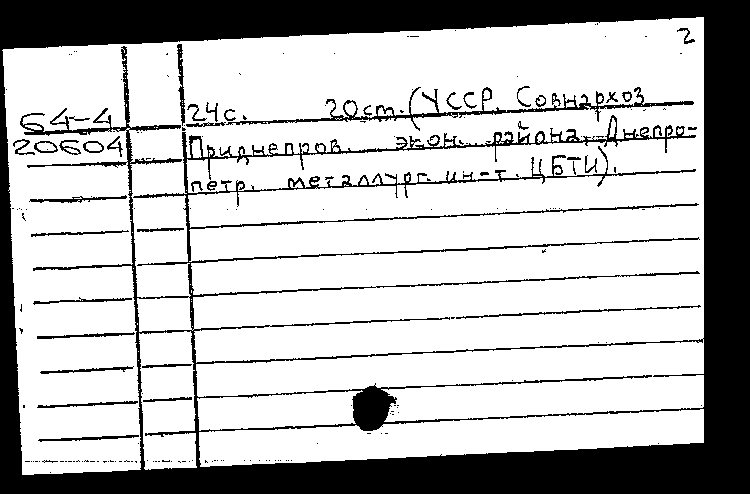 2
64-4 24с. 20см. (УССР. Совнархоз
20604 Приднепров. экон. района. Днепро-
петр. металлург. ин-т. ЦБТИ).